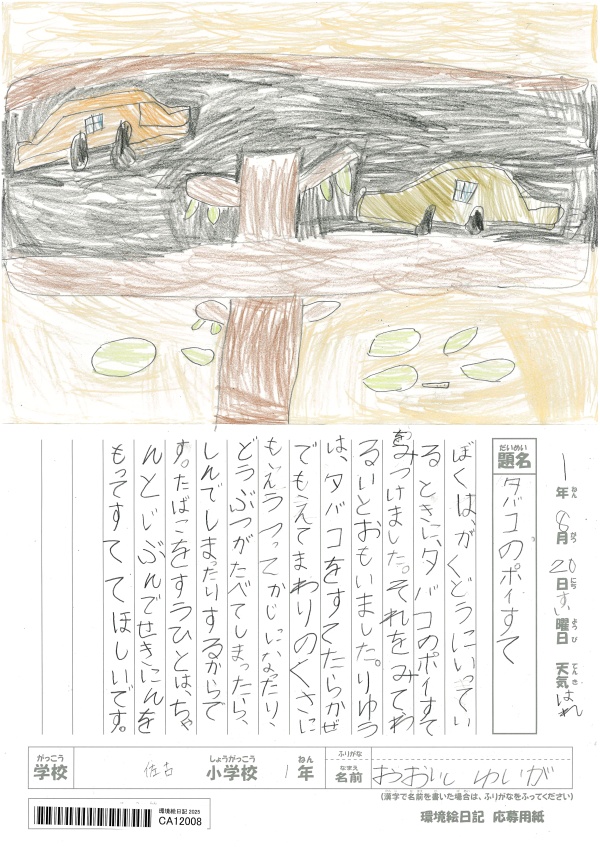 1年 8月 20日 すい曜日 天気 はれ
ねん がつ にち ようび てんき
だいめい
題名 タバコのポイすて
ぼくは、がくどうにいってい
るときに、タバコのポイすて
をみつけました。それをみてわ
るいとおもいました。りゆう
は、タバコをすてたらかぜ
でもえてまわりのくさに
もえうつってかじになったり、
どうぶつがたべてしまったら、
しんでしまったりするからで
す。たばこをすうひとは、ちゃ
んとじぶんでせきにんを
もってすててほしいです。
がっこう しょうがっこう ねん ふりがな
学校 佐古 小学校 1年 なまえ
名前 おおいし ゆいが
(漢字で名前を書いた場合は、ふりがなをふってください)
環境絵日記 2025
CA12008
環境絵日記 応募用紙